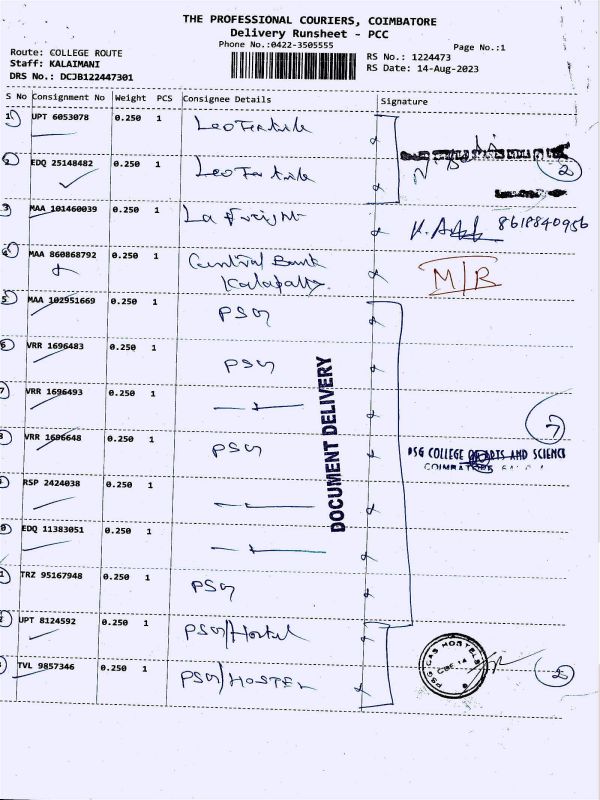 THE PROFESSIONAL COURIERS, COIMBATORE
Delivery Runsheet - PCC
Phone No.:0422-3505555
Page No.:1
Route: COLLEGE ROUTE
Staff: KALAIMANI
DRS No.: DCJB122447301
RS No.: 1224473
RS Date: 14-Aug-2023
S No Consignment No Weight PCS Consignee Details Signature
1 UPT 6053078 0.250 1 Leo Fertile
2 EDQ 25148482 0.250 1 Leo Fertile
2
3 MAA 101460039 0.250 1 La Freight 8618840956
4 MAA 860868792 0.250 1 Central Bank
Kalapatty M/R
5 MAA 102951669 0.250 1 PSG
6 VRR 1696483 0.250 1 PSG
7 VRR 1696493 0.250 1
7
8 VRR 1696648 0.250 1 PSG
PSG COLLEGE OF ARTS AND SCIENCE
COIMBATORE
RSP 2424038 0.250 1
EDQ 11383051 0.250 1
TRZ 95167948 0.250 1 PSG
UPT 8124592 0.250 1 PSG/Hostel
TVL 9857346 0.250 1 PSG/HOSTEL
PSG CAS HOSTELS
CBE-14
DOCUMENT DELIVERY